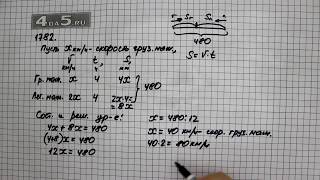 4DA5.RU
1782.
Пусть x км/ч - скорость груз. маш.
V t S
км/ч ч км
Гр. маш. x 4 4x
480
Лег. маш. 2x 4 2x·4=
=8x
Сост. и реш. ур-е:
4x + 8x = 480
(4+8)x = 480
12x = 480
x = 480:12
x = 40 км/ч - скор. груз. маш.
40·2 = 80 км/ч
480
S = V·t